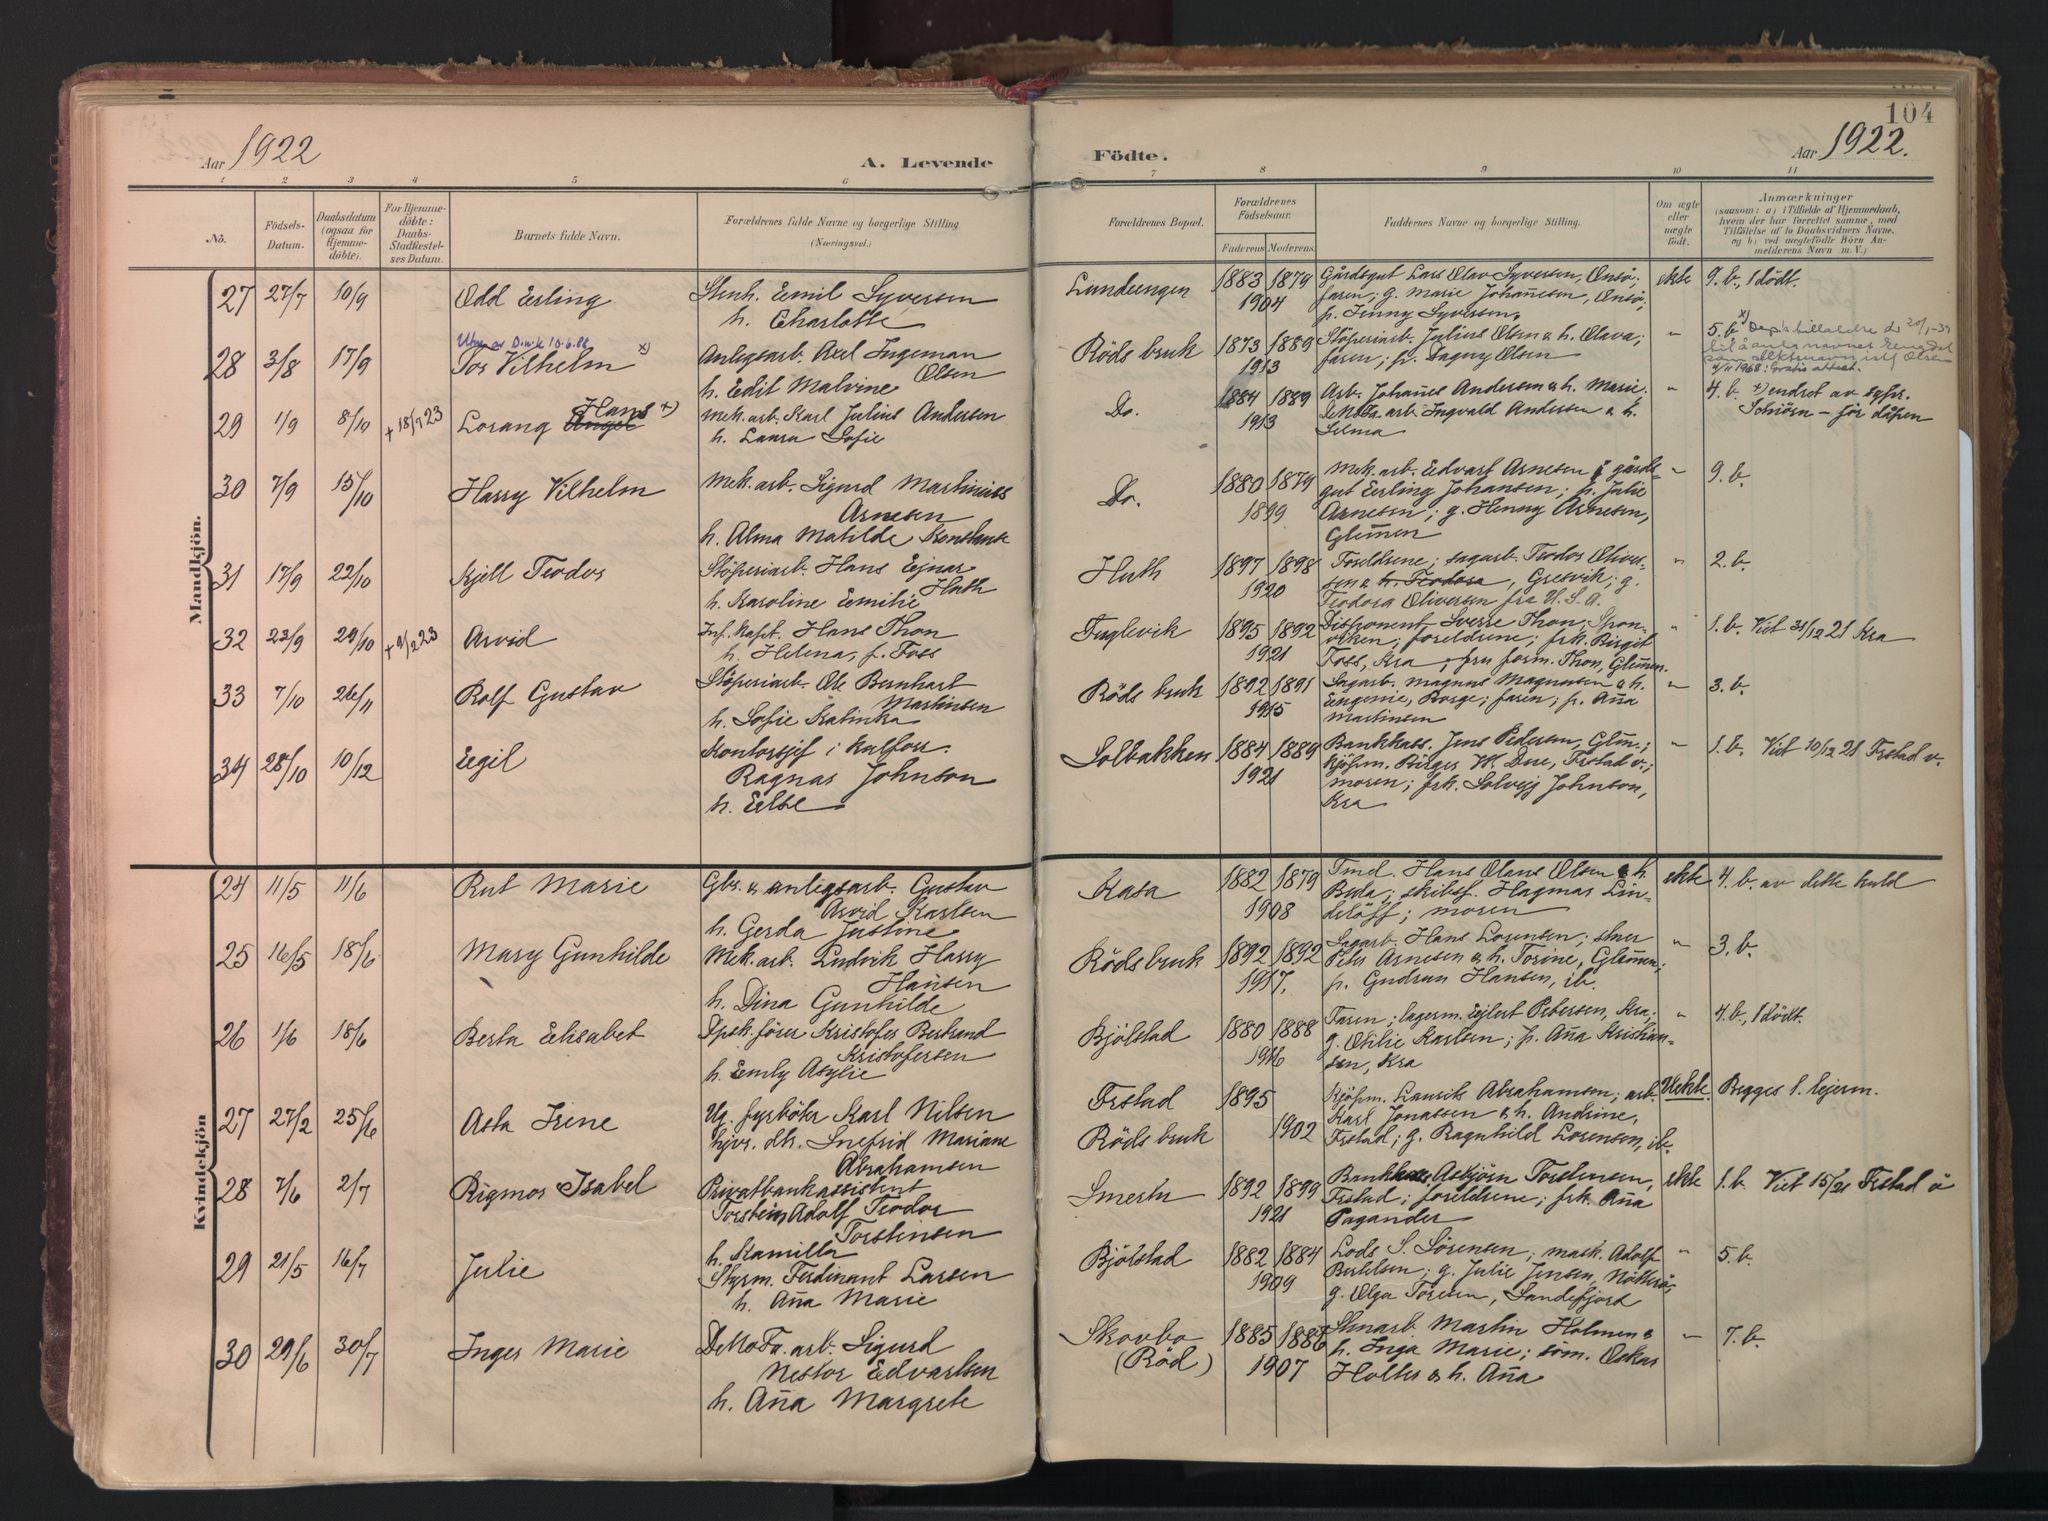 104
Aar 1922
A. Levende
Födte.
Aar 1922.
1 2 3 4 5 6 7 8 9 10 11
No.
Födsels-
Datum.
Daabsdatum
(ogsaa for
Hjemme-
döbte).
For Hjemme-
döbte:
Daabs-
Stadfæstel-
ses Datum.
Barnets fulde Navn.
Forældrenes fulde Navne og borgerlige Stilling
(Næringsvei.)
Forældrenes Bopæl.
Forældrenes
Födselsaar.
Faderens Moderens
Faddernes Navne og borgerlige Stilling.
Om ægte
eller
uægte
födt.
Anmærkninger
(saasom: a) i Tilfælde af Hjemmedaab,
hvem der har forrettet samme, med
Tilföielse af to Daabsvidners Navne,
og b) ved uægtefödte Börn An-
melderens Navn m. V.)
Mandkjön.
27 27/7 10/9 Odd Erling
Stenh. Emil Syversen
h. Charlotte
Lundengen 1883 1879
1904
Gårdsgut Lars Olav Syversen, Onsö;
faren; g. Marie Johan̄esen, Onsö;
p. Jenny Syversen.
ekte 9. b., 1 dödt.
28 3/8 17/9 Tor Vilhelm x)
Anlegsarb. Axel Ingeman
Olsen
h. Edit Malvine
Röds bruk 1873 1889
1913
Stöperiarb. Julius Olsen & h. Olava;
faren; p. Dagny Olsen
" 5. b.
29 1/9 8/10 + 18/7 23 Lorang Angel Hans +)
Mek. arb. Karl Julius Andersen
h. Laura Sofie
Do. 1884 1889
1913
Arb. Johan̄es Andersen & h. Marie;
DeNoFa. arb. Ingvald Andersen & h.
Selma
" 4. b. +) endret av sogpr.
Schiörn – för dåpen
30 7/9 15/10 Harry Vilhelm
Mek. arb. Sigurd Martinius
Arnesen
h. Alma Matilde Konstanse
Do. 1880 1879
1899
Mek. arb. Edvart Arnesen; gårds-
gut Erling Johansen; p. Julie
Arnesen; g. Henny Arnesen,
Glem̄en
" 9. b.
31 17/9 22/10 Kjell Teodor
Stöperiarb. Hans Ejnar
Huth
h. Karoline Emilie
Huth 1897 1898
1920
Foreldrene; sagarb. Teodor Oliver-
sen & h. Teodora, Gresvik; g.
Teodora Oliversen fra U.S.A.
" 2. b.
32 23/9 29/10 + 9/2 23 Arvid
Inf. kapt. Hans Thon
h. Helena, f. Foss
Fuglevik 1895 1892
1921
Disponent Sverre Thon, Spon-
viken; foreldrene; frk. Birgit
Foss, Kra; fru form. Thon, Glem̄en.
" 1. b. Viet 31/12 21 Kra
33 7/10 26/11 Rolf Gustav
Stöperiarb. Ole Bernhart
Martinsen
h. Sofie Katinka
Röds bruk 1892 1891
1915
Sagarb. Magnus Magnussen & h.
Eugenie, Borge; faren; p. An̄a
Martinsen
" 3. b.
34 28/10 10/12 Egil
Kontorsjef i Kalfoss.
Ragnar Johnson
h. Else
Solbakken 1884 1889
1921
Bankkass. Jens Pedersen, Glem̄.;
kjöpm. Birger W. Due, Frstad v.;
moren; frk. Solveig Johnson,
Kra
" 1. b. Viet 10/12 21 Frstad v.
Kvindekjön
24 11/5 11/6 Rut Marie
Gbr. & anlegsarb. Gustav
Arvid Karlsen
h. Gerda Justine
Kasa 1882 1879
1908
Tmd. Hans Olaus Olsen & h.
Beda; skibsf. Hagmar Lin-
delöff; moren
ekte 4. b. av dette kuld
25 16/5 18/6 Mary Gunhilde
Mek. arb. Ludvik Harry
Hansen
h. Dina Gunhilde
Rödsbruk 1892 1892
1917.
Sagarb. Hans Lorensen; stuer
Peter Arnesen & h. Torine, Glem̄en;
p. Gudrun Hansen, ib.
" 3. b.
26 1/6 18/6 Berta Elisabet
Dpsk. förer Kristofer Bertrand
Kristofersen
h. Emly Asylie
Bjölstad 1880 1888
1916
Faren; lagerm. Ejlert Petersen, Kra;
g. Otilie Karlsen; p. An̄a Kristian-
sen, Kra
" 4. b., 1 dödt.
27 27/2 25/6 Asta Irene
Ug. fyrböter Karl Nilsen
hjvr. dtr. Snefrid Mariane
Abrahamsen
Frstad 1895
Röds bruk 1902
Kjöpm. Laurits Abrahamsen; arb.
Karl Jonassen & h. Andrine,
Frstad; g. Ragnhild Lorensen, ib.
Uekte Begges 1. lejerm.
28 7/6 2/7 Rigmor Isabel
Privatbankassistent
Torstein Adolf Teodor
Torstensen
h. Kamilla
Smertu 1892 1899
1921
Bankkass. Asbjörn Torstensen,
Frstad; foreldrene; frk. An̄a
Pagander
ekte 1. b. Viet 15/ 21 Frstad ö
29 21/5 16/7 Julie
Styrm. Ferdinant Larsen
h. An̄a Marie
Bjölstad 1882 1884
1909
Lods S. Sörensen; mask. Adolf
Bertelsen; g. Julie Jensen, Nötterö;
g. Olga Töresen, Sandefjord
" 5. b.
30 29/6 30/7 Inger Marie
DeNoFa. arb. Sigurd
Nestor Edvartsen
h. An̄a Margrete
Skovbo
(Röd)
1885 1886
1907
Stenarb. Martin Holmen &
h. Inga Marie; söm. Oskar
Holter & h. An̄a
" 7. b.